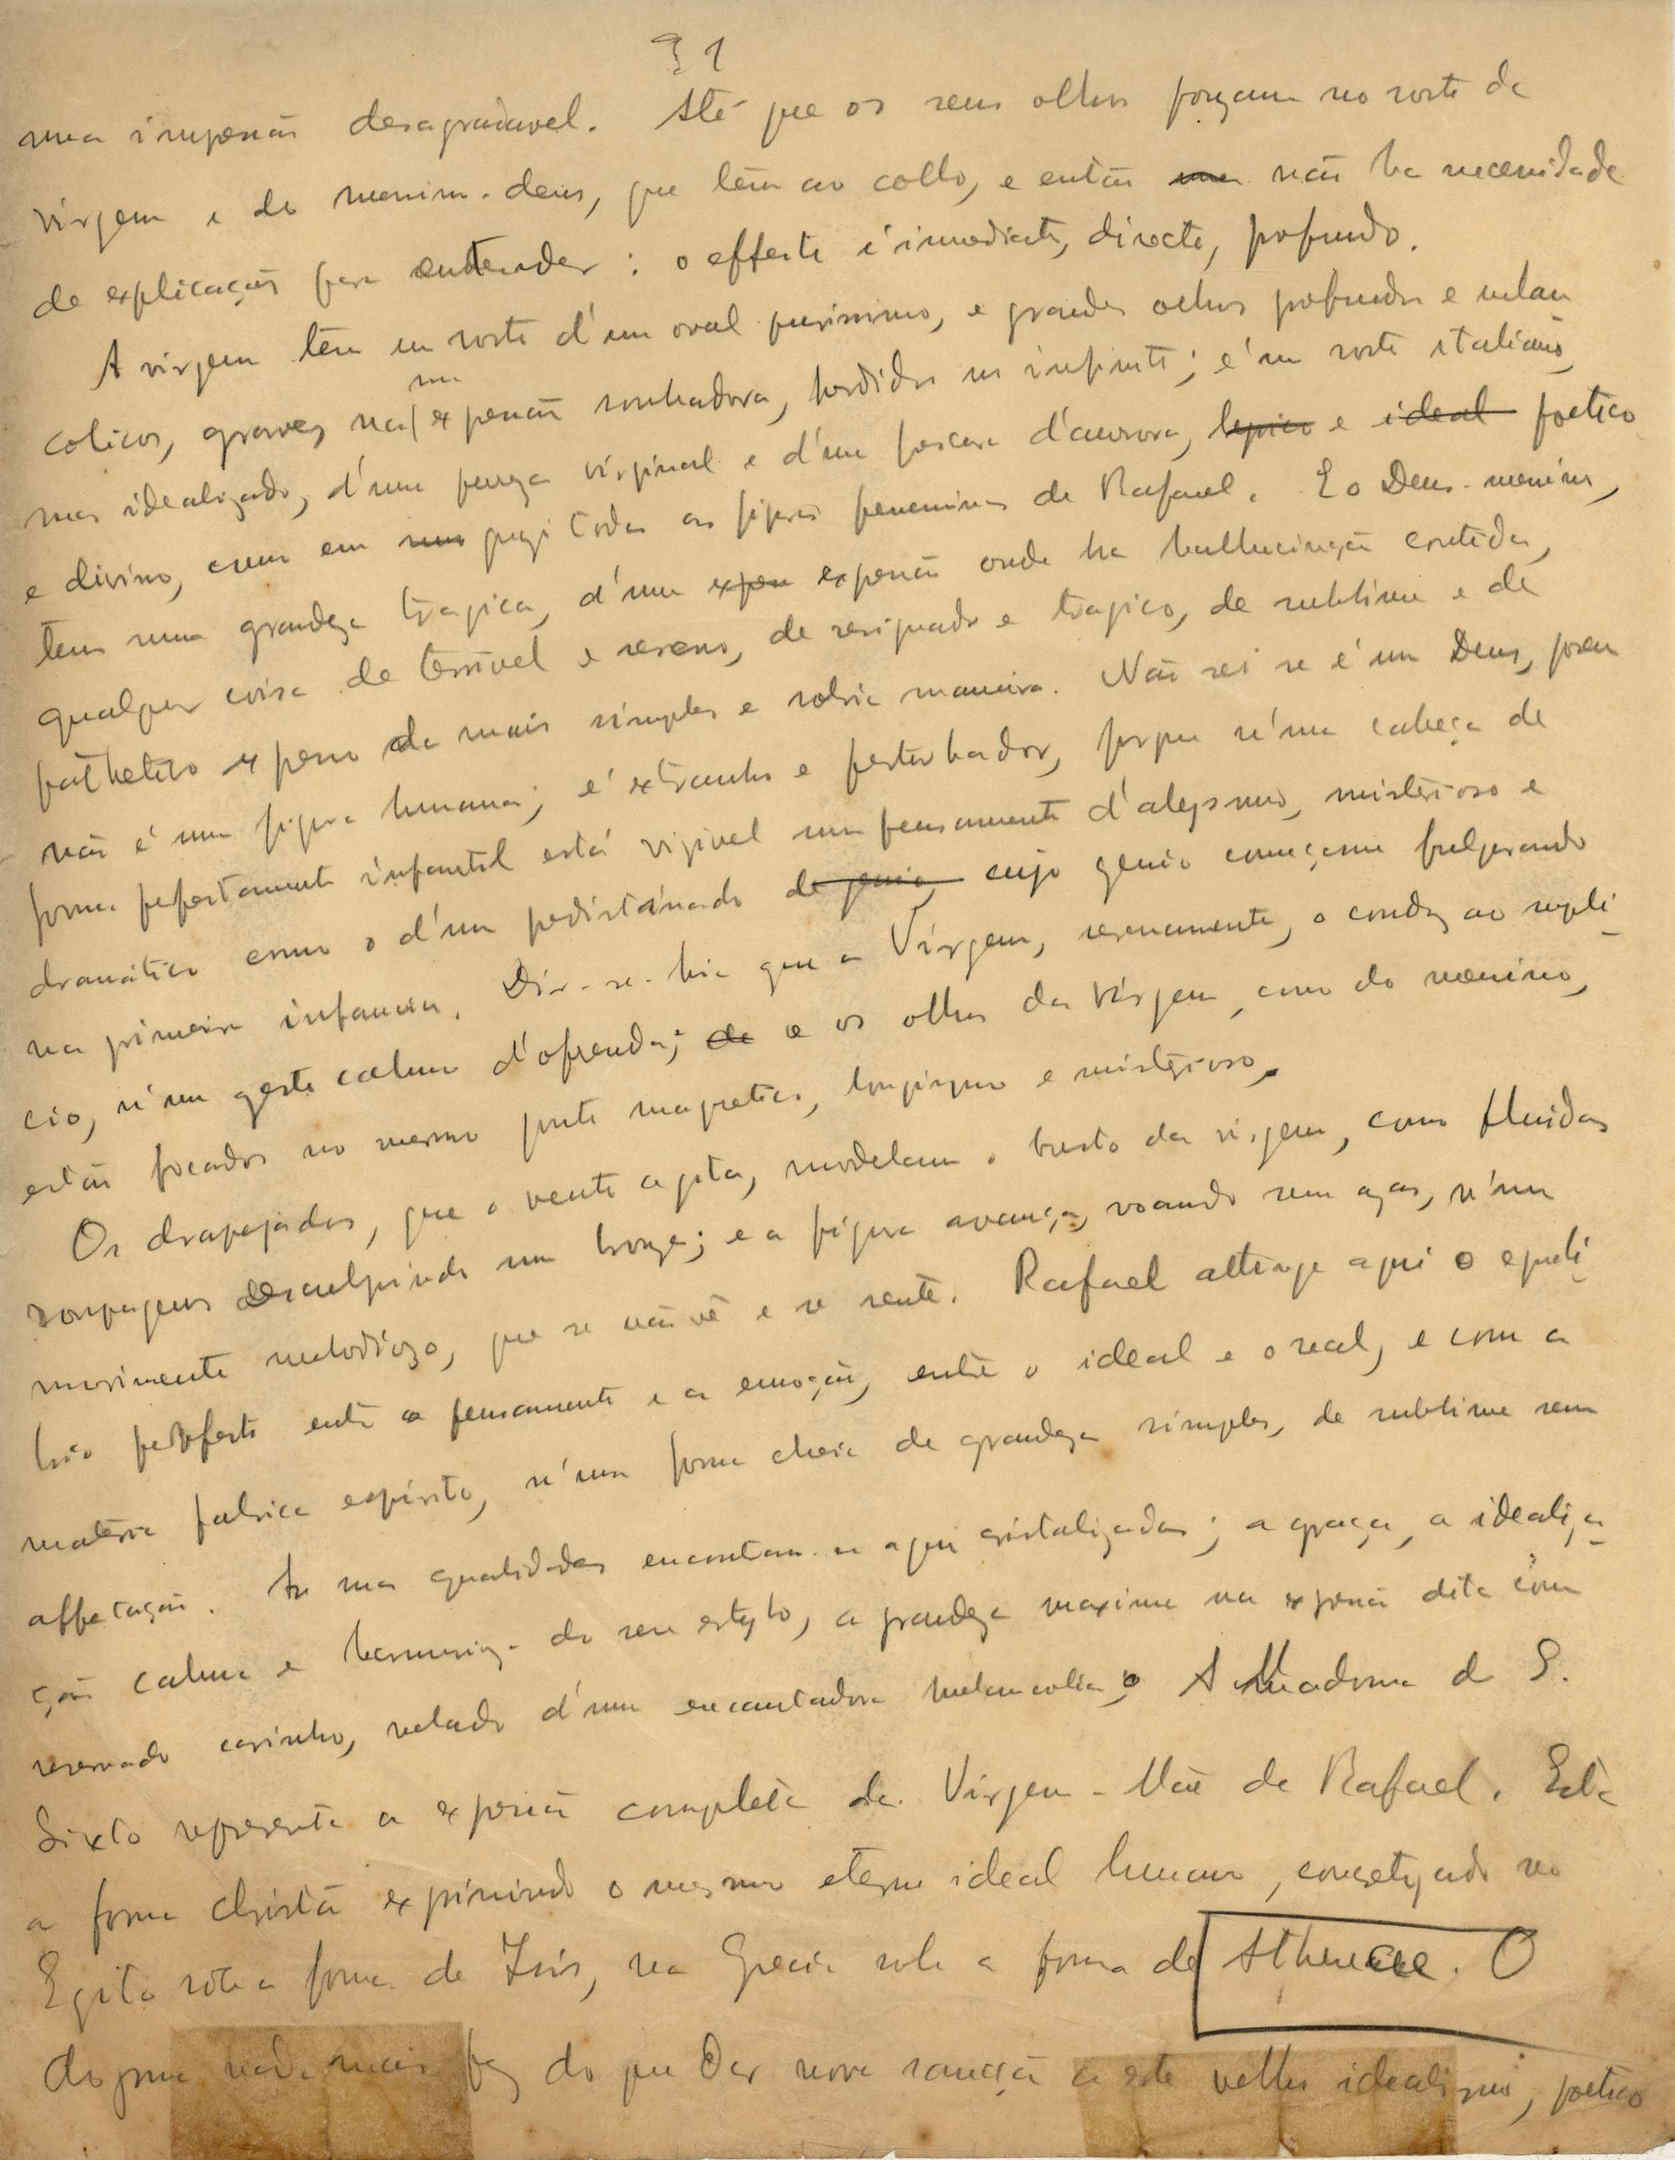 31
uma impressão desagradavel. Até que os seus olhos poizam no rosto da
virgem e do menino-deus, que têm ao collo, e então não ha necessidade
de explicação para entender: o effeito é immediato, directo, profundo.
A virgem têm um rosto d'um oval purissimo, e grandes olhos profundos e melan
colicos, graves, na expressão sonhadora, perdidos no infinito; é um rosto italiano,
uma
mas idealizado, d'uma pureza virginal e d'uma frescura d'aurora, lyrico e ideal poetico
e divino, como em quazi todas as figuras femeninas de Rafael. E o Deus-menino,
tem uma grandeza tragica, d'uma expressão onde ha hallucinação contida,
qualquer coisa de terrivel e sereno, de resignado e tragico, de sublime e de
pathetico expresso da mais simples e sobria maneira. Não sei se é um Deus, porem
não é uma figura humana; é extranho e perturbador, porque n'uma cabeça de
forma perfeitamente infantil está vizivel um pensamento d'abysmo, misterioso e
dramático como o d'um predistinado de genio, cujo genio começasse fulgurando
na primeira infancia. Dir-se-hia que a Virgem, serenamente, o conduz ao supli-
cio, n'um gesto calmo d'ofrenda; de e os olhos da Virgem, como do menino,
estão focados no mesmo ponto magnetico, longinquo e misterioso.
Os drapejados, que o vento agita, modelam o busto da virgem, com fluidas
roupagens desculpindo um bronze; e a figura avança, voando sem azas, n'um
movimento melodiozo, que se não vê e se sente. Rafael attinge aqui o equili-
brio perfeito entre o pensamento e a emoção, entre o ideal e o real, e com a
materia fabrica espirito, n'uma forma cheia de grandeza simples, de sublime sem
affectação. As suas qualidades encontram-se aqui cristalizadas; a graça, a idealiza-
ção calma e do seu estylo, a grandeza maxima na expressão dita com
reservado carinho, velado d'uma encantadora melancolia. A Madona de S.
Sixto representa a expressão completa da Virgem-Mãe de Rafael. Está
a forma christã exprimindo o mesmo eterno ideal humano, no
Egito sob a forma de Isis, na Grecia sob a forma de Athenea. O
dogma nada mais fez do que dar nova sanção a este velho idealismo, poetico